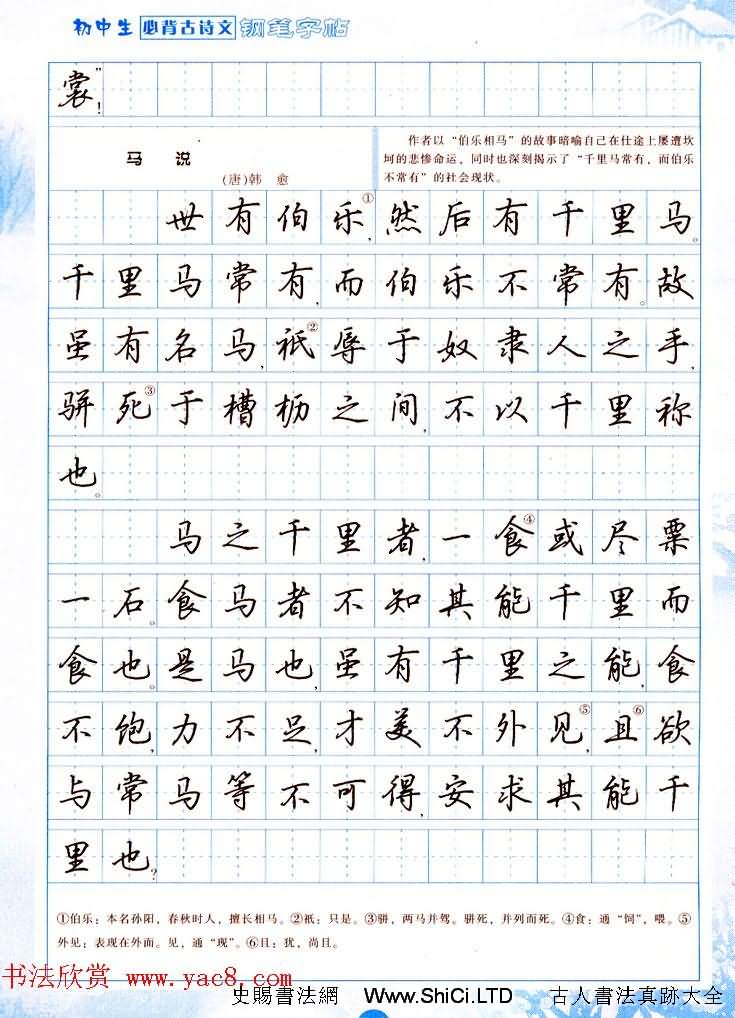 初中生必背古诗文钢笔字帖
裳"!
马 说
(唐)韩 愈
作者以“伯乐相马”的故事暗喻自己在仕途上屡遭坎
坷的悲惨命运，同时也深刻揭示了“千里马常有，而伯乐
不常有”的社会现状。
世有伯乐①，然后有千里马。
千里马常有，而伯乐不常有。故
虽有名马，祇②辱于奴隶人之手，
骈死③于槽枥之间，不以千里称
也。
马之千里者，一食④或尽粟
一石。食马者不知其能千里而
食也。是马也，虽有千里之能，食
不饱，力不足，才美不外见⑤，且⑥欲
与常马等不可得，安求其能千
里也？
①伯乐：本名孙阳，春秋时人，擅长相马。②祇：只是。③骈，两马并驾。骈死，并列而死。④食：通“饲”，喂。⑤
外见：表现在外面。见，通“现”。⑥且：犹，尚且。
书法欣赏 www.yac8.com
史賜書法網 Www.ShiCi.LTD 古人書法真跡大全